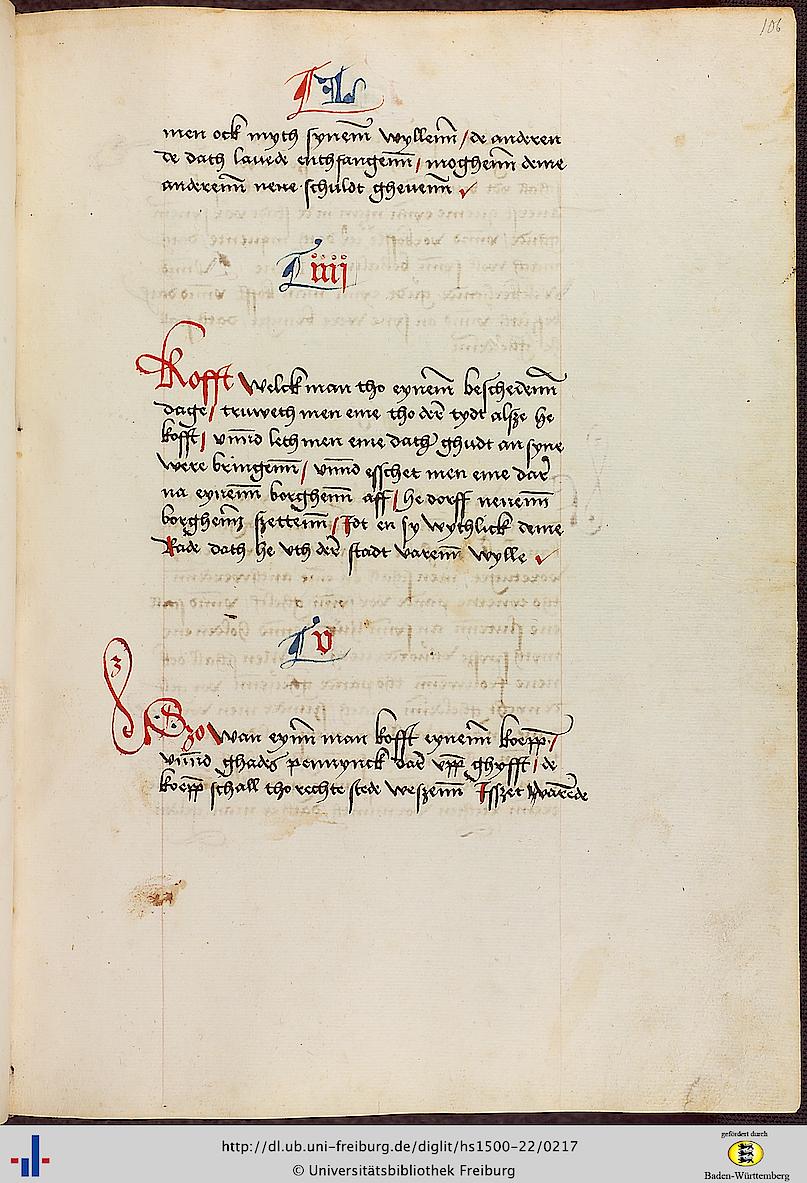 106
L
men ock myth synem̄ wyllenn̄ / de anderen
de dath lauede enthfangenn̄ / moghenn̄ deme
anderenn̄ nene schuldt gheuenn̄
iiii
Kofft welck man tho eynem̄ bescheidenn̄
dage / truweth men eme tho der tydt alsze he
kofft / vnnd leth men eme dath ghudt an syne
were bringenn̄ / vnnd esschet men eme dar
na eynenn̄ borghenn̄ aff / he dorff nenenn̄
borghenn̄ szettenn̄ / Idt en sy wythlick deme
Rade dath he vth der stadt varenn̄ wylle
v
Szo wan eynn̄ man kofft eynenn̄ koepp /
vnnd ghades pennynck dar vpp ghyfft / de
koepp schall tho rechte stede weszenn̄ Isszet
http://dl.ub.uni-freiburg.de/diglit/hs1500-22/0217
© Universitätsbibliothek Freiburg
gefördert durch
Baden-Württemberg